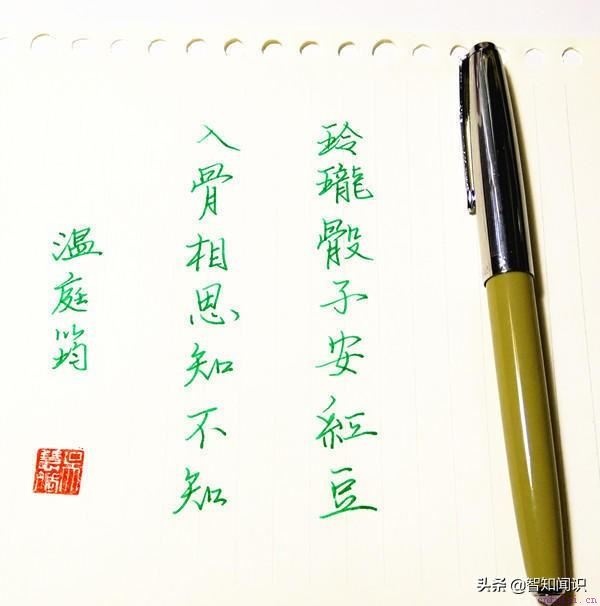 玲瓏骰子安紅豆
入骨相思知不知
温庭筠
头条 @智知闻识